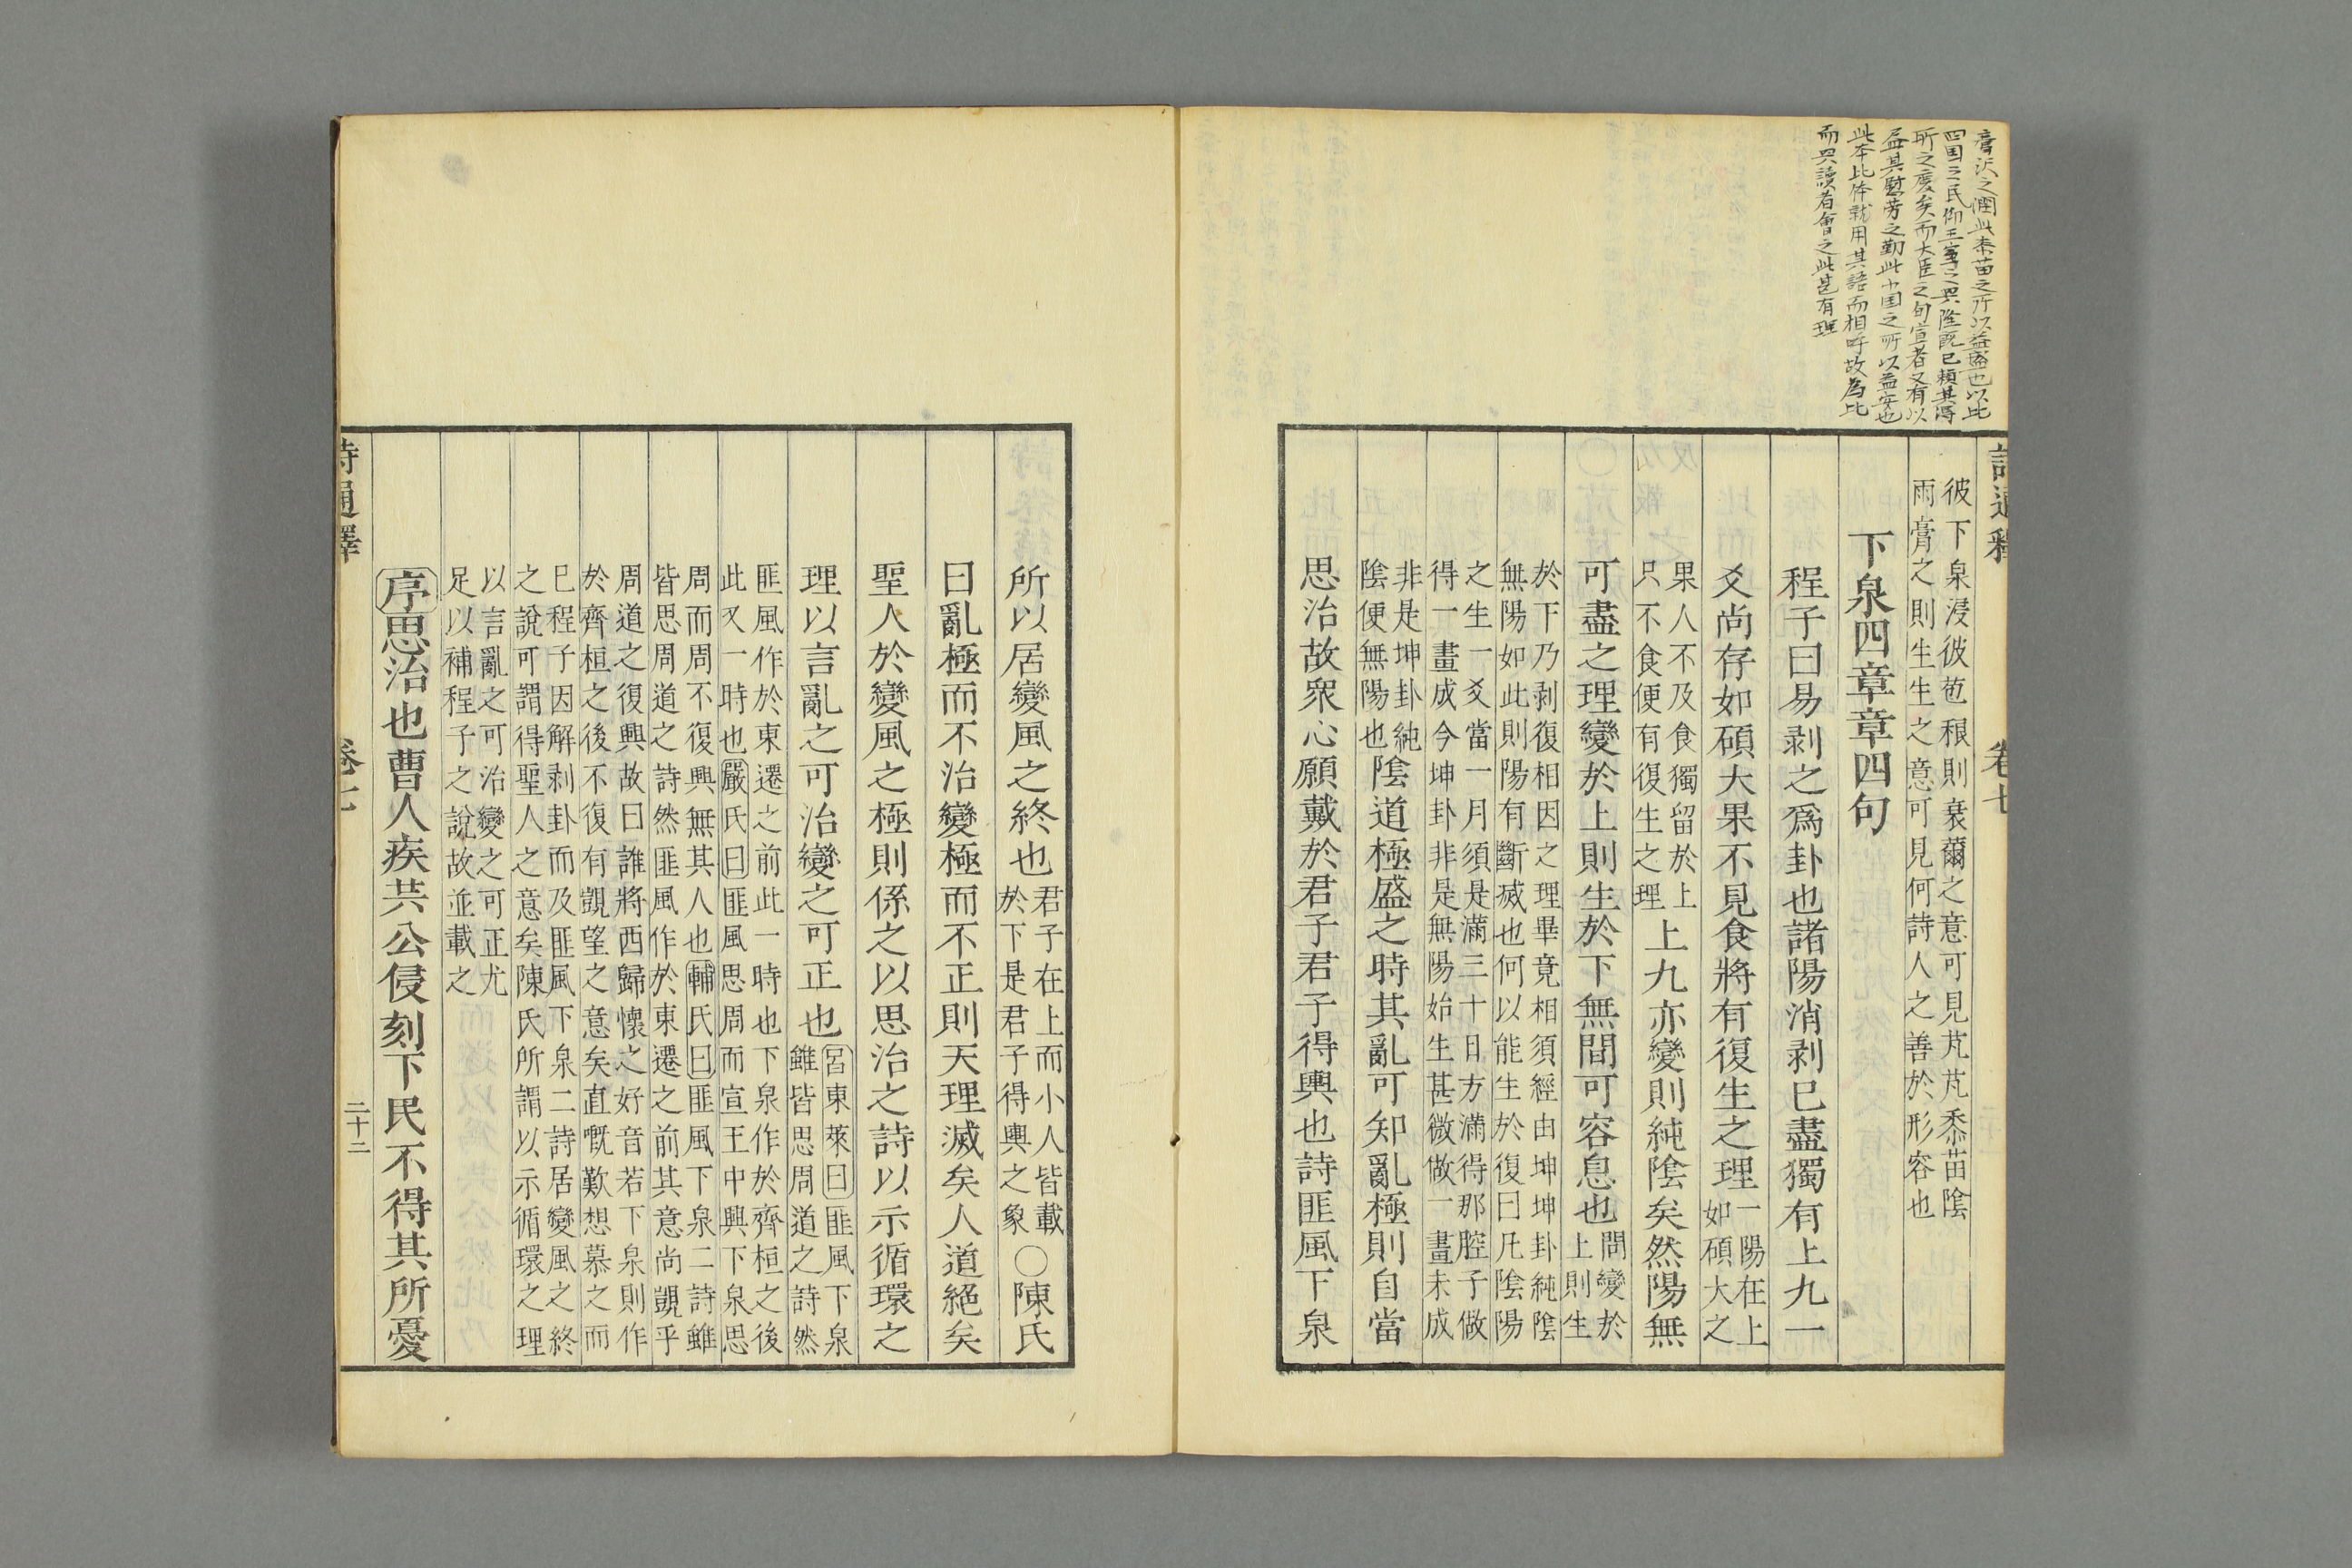 膏沃之潤此黍苗之所以益盛也以比
四国之民仰王室之興隆既已賴其得
所之慶矣而大臣之旬宣者又有以
益其慰劳之勤此小国之所以益安也
此本比体就用其語而相呼故為比
而興讀者會之此甚有理
詩通釋 卷七
彼下泉浸彼苞稂則衰爾之意可見芃芃黍苗陰
雨膏之則生生之意可見何詩人之善於形容也
下泉四章章四句
程子曰易剥之爲卦也諸陽消剥巳盡獨有上九一
爻尚存如碩大果不見食將有復生之理一陽在上如碩大之
果人不及食獨留於上只不食便有復生之理上九亦變則純陰矣然陽無
可盡之理變於上則生於下無間可容息也問變於上則生
於下乃剥復相因之理畢竟相須經由坤坤卦純陰
無陽如此則陽有斷滅也何以能生於復曰凡陰陽
之生一爻當一月須是滿三十日方滿得那腔子做
得一畫成今坤卦非是無陽始生甚微做一畫未成
非是坤卦純陰便無陽也陰道極盛之時其亂可知亂極則自當
思治故衆心願戴於君子君子得輿也詩匪風下泉
所以居變風之終也君子在上而小人皆載於下是君子得輿之象○陳氏
曰亂極而不治變極而不正則天理滅矣人道絕矣
聖人於變風之極則係之以思治之詩以示循環之
理以言亂之可治變之可正也呂東萊曰匪風下泉雖皆思周道之詩然
匪風作於東遷之前此一時也下泉作於齊桓之後
此又一時也嚴氏曰匪風思周而宣王中興下泉思
周而周不復興無其人也輔氏曰匪風下泉二詩雖
皆思周道之詩然匪風作於東遷之前其意尚覬乎
周道之復興故曰誰將西歸懷之好音若下泉則作
於齊桓之後不復有覬望之意矣直嘅歎想慕之而
巳程子因解剥卦而及匪風下泉二詩居變風之終
之說可謂得聖人之意矣陳氏所謂以示循環之理
以言亂之可治變之可正尤
足以補程子之說故並載之
序思治也曹人疾共公侵刻下民不得其所憂
詩通釋 卷七 二十二